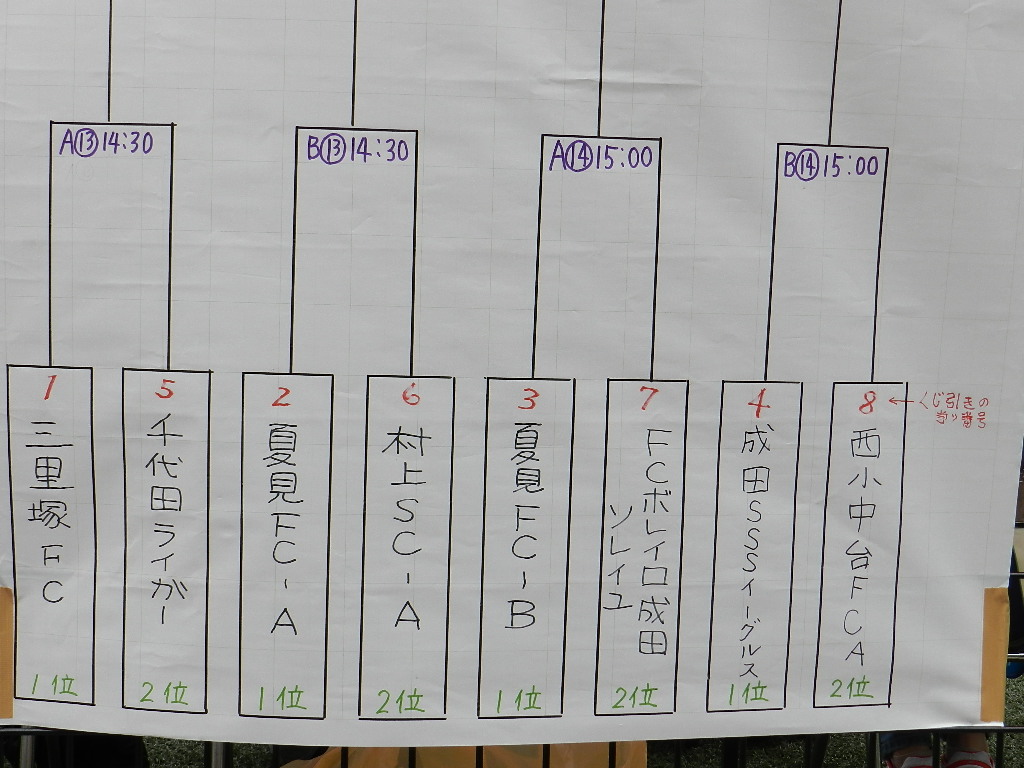 A⑬14:30
B⑬14:30
A⑭15:00
B⑭15:00
1
三里塚FC
1位
5
千代田ライガー
2位
2
夏見FC-A
1位
6
村上SC-A
2位
3
夏見FC-B
1位
7
FCボレイロ成田
ソレイユ
2位
4
成田SSSイーグルス
1位
8
西小中台FCA
2位
←くじ引きの
当り番号